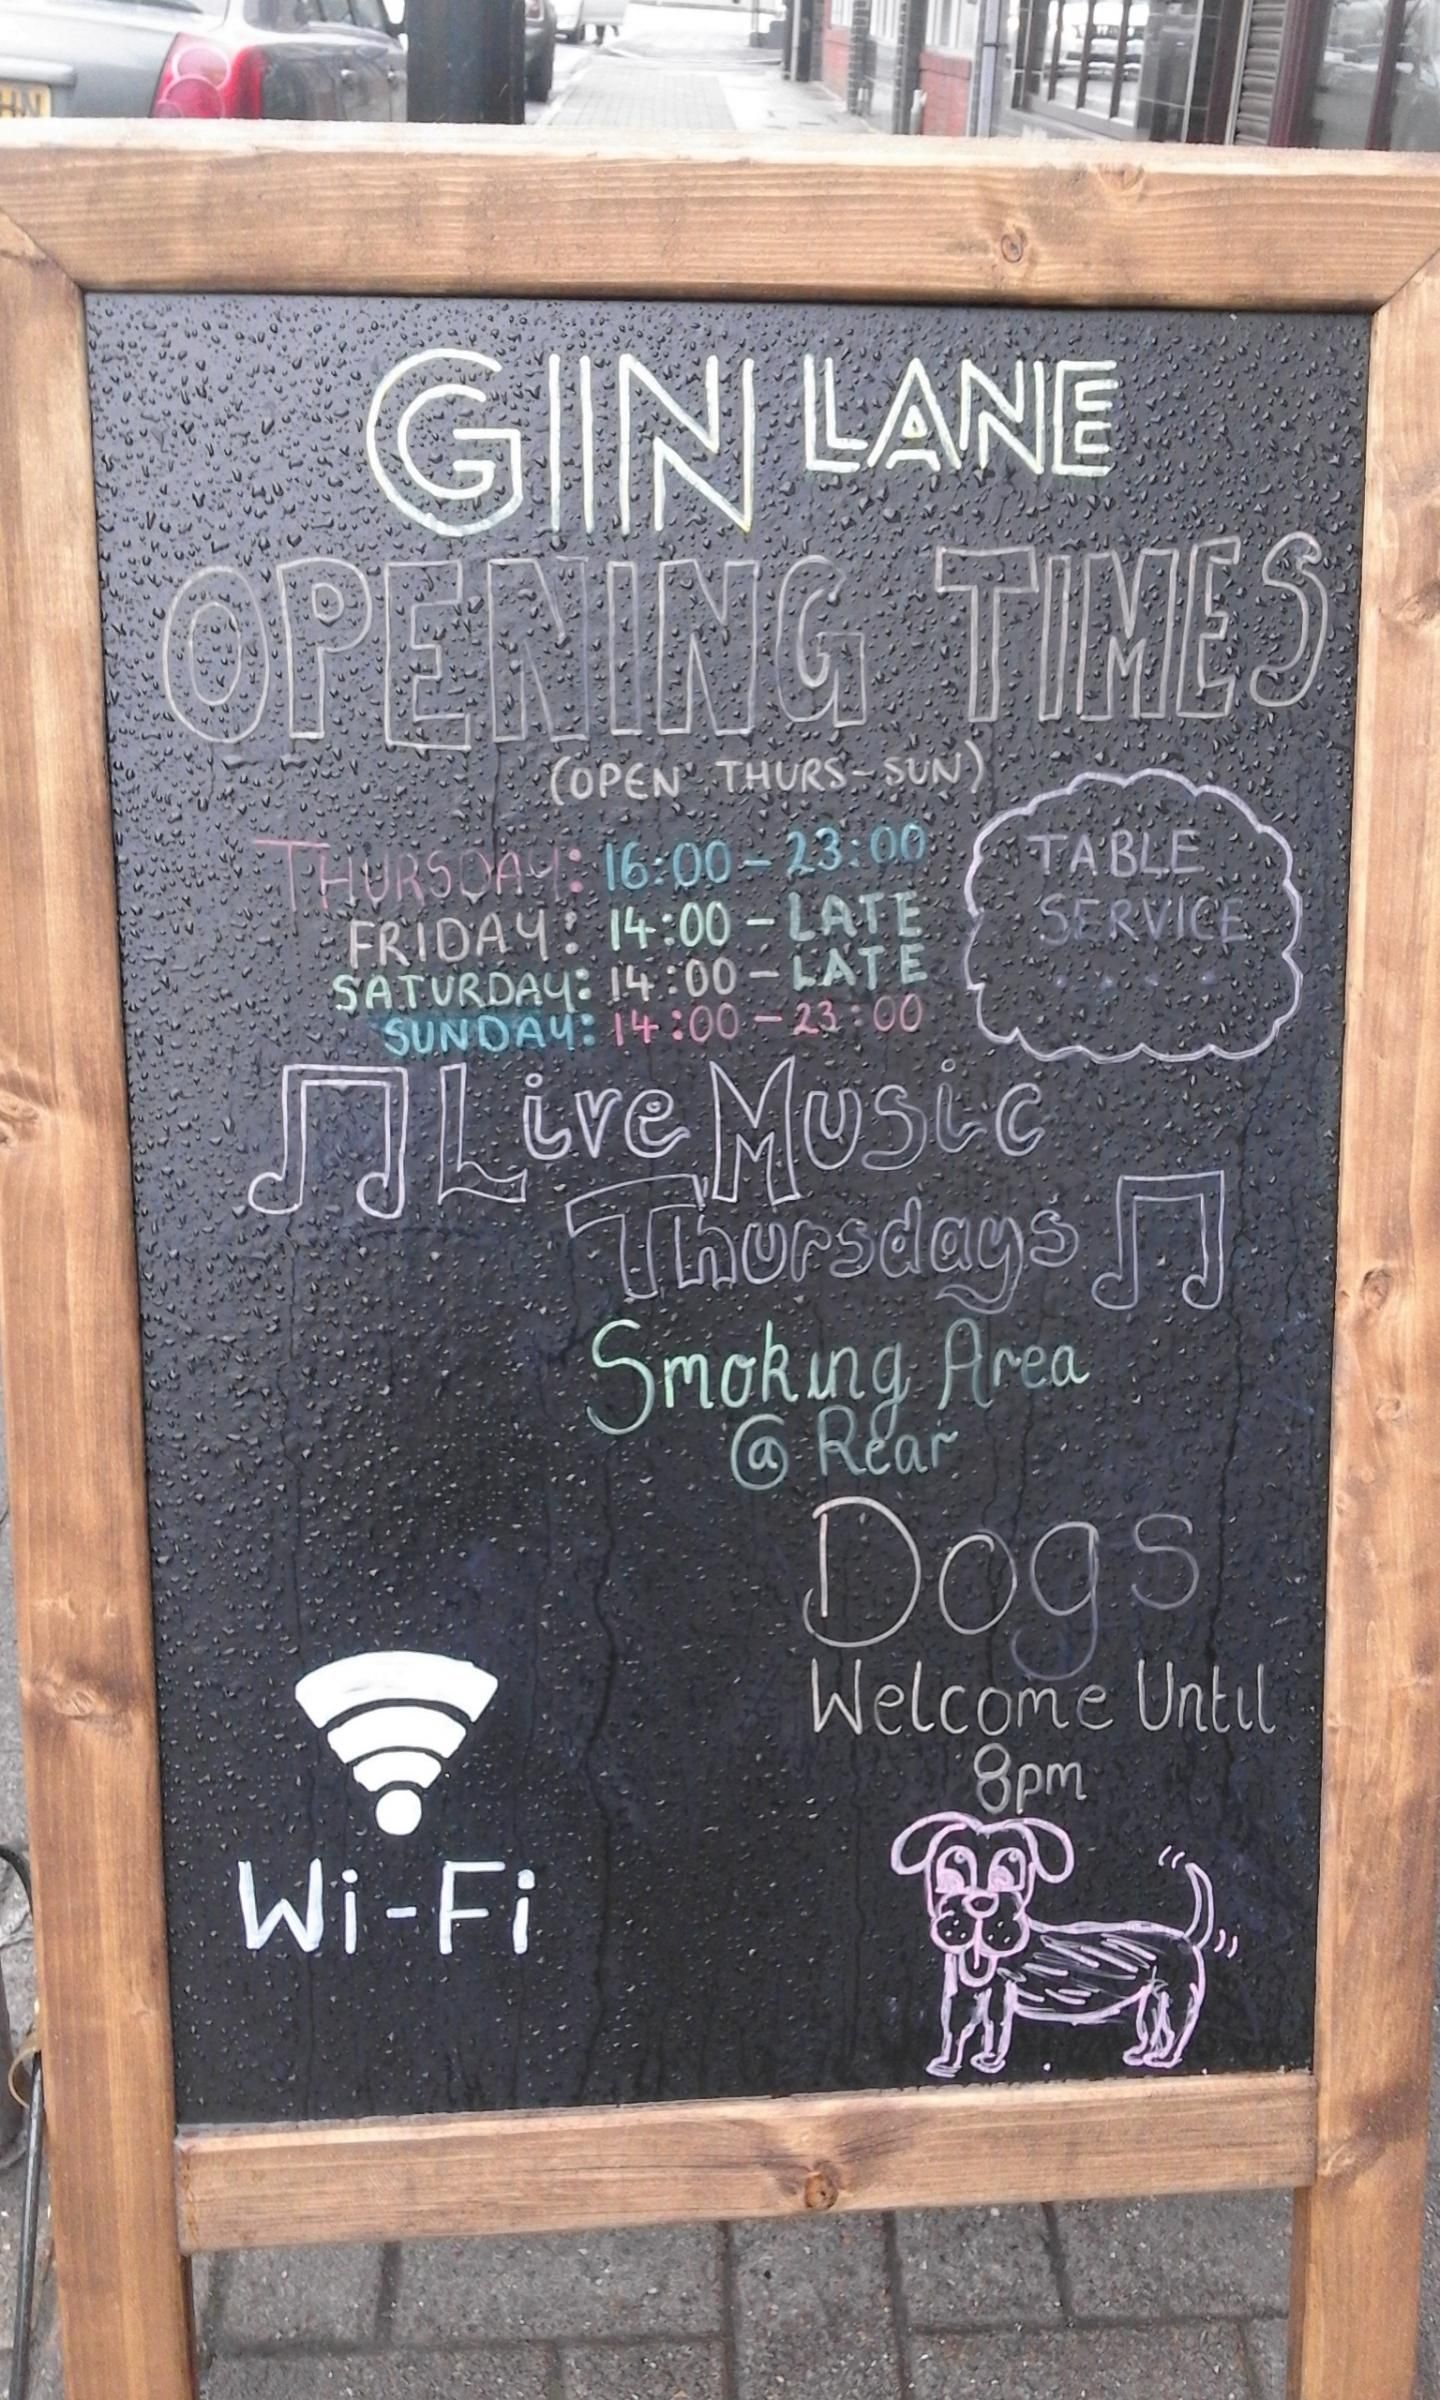 HN
GIN LANE
OPENING TIMES
(OPEN THURS-SUN)
THURSDAY: 16:00 - 23:00
FRIDAY: 14:00 - LATE
SATURDAY: 14:00 - LATE
SUNDAY: 14:00 - 23:00
TABLE
SERVICE
....
Live Music
Thursdays
Smoking Area
@ Rear
Dogs
Welcome Until
8pm
Wi-Fi